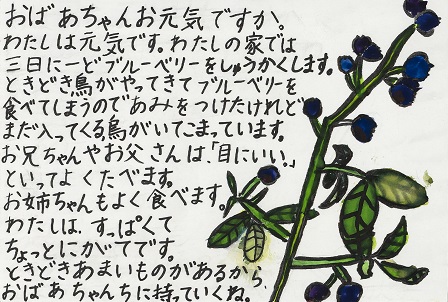 おばあちゃんお元気ですか。
わたしは元気です。わたしの家では
三日に一どブルーベリーをしゅうかくします。
ときどき鳥がやってきてブルーベリーを
食べてしまうのであみをつけたけれど
まだ入ってくる鳥がいてこまっています。
お兄ちゃんやお父さんは、「目にいい。」
といってよくたべます。
お姉ちゃんもよく食べます。
わたしは、すっぱくて
ちょっとにがてです。
ときどきあまいものがあるから、
おばあちゃんちに持っていくね。